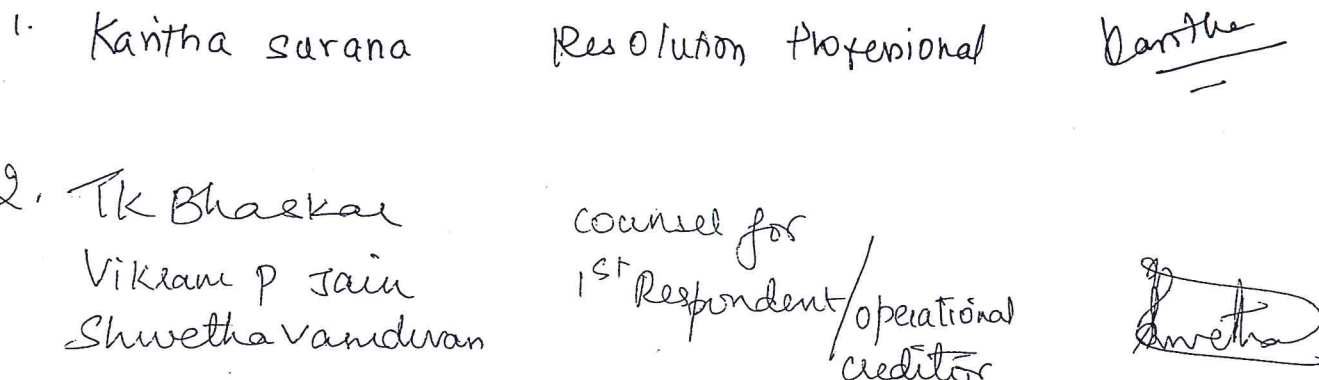 1. Kantha Surana Resolution Professional Kantha
2. TK Bhaskar
Vikram P Jain
Shwetha Vasudevan
counsel for
1st Respondent/operational
creditor
Shwetha